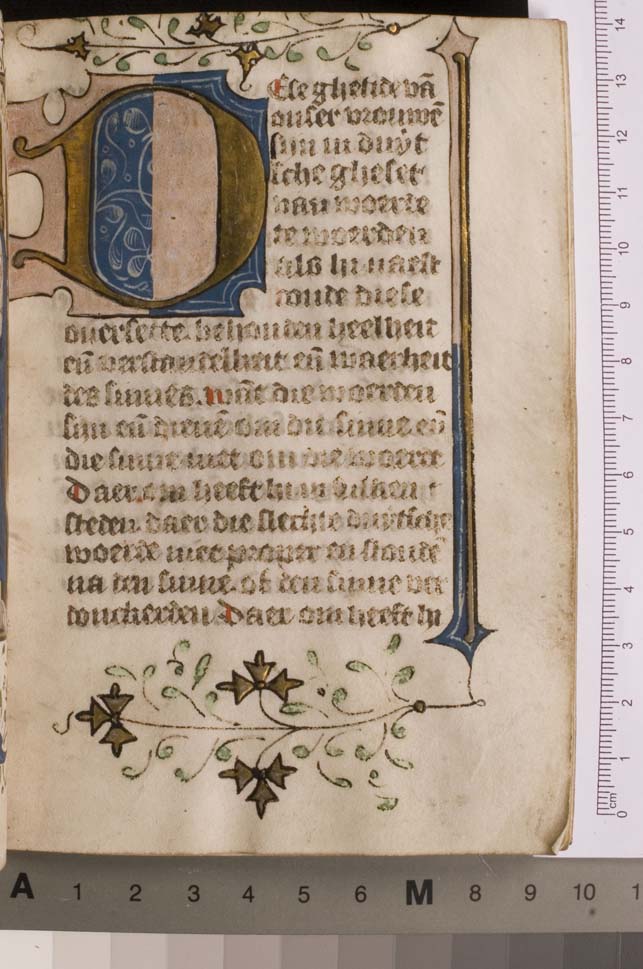 D Ese ghetide vā
onser vrouwē
sijn in duyt
sche gheset
van woerde
te woerden
als hi naest
conde diese
ouersette. behouden heelheit
eñ verstandelheit eñ waerheit
des sinnes. wāt die woerden
sijn eñ dienē om die sinne eñ
die sinne niet om die woerde
Daer om heeft hi in sulken
steden daer die slechte duytsche
woerde niet proper en stondē
na den sinne. of den sinne ver
donckerden Daer om heeft hi
14
13
12
11
10
9
8
7
6
5
4
3
2
1
0 cm
A 1 2 3 4 5 6 M 8 9 10